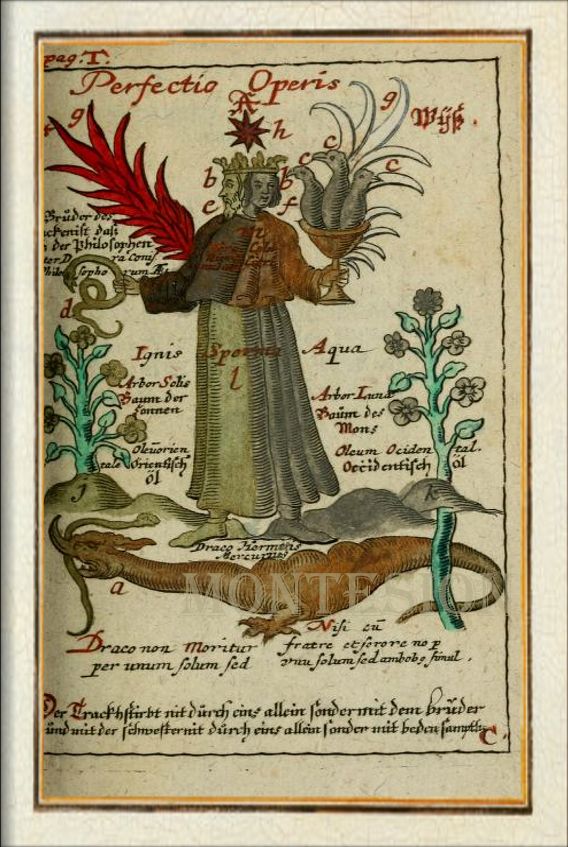 pag: T.
Perfectio Operis
A
g h g Wÿß.
c c c
b b
e f
Brüder des
ist daß
der Philosophen
d
Ignis Sperma Aqua
l
Arbor Solis
Baum der
Sonnen
Arbor Lunæ
Baüm des
Mons
Oleu orien
tale Orientisch
öl
Oleum Ociden tal.
Occidentisch öl
j k
Draco Hermetis
Mercurius
a
MONTESION
Draco non Moritur Nisi cū
per unum solum sed fratre et sorore no p
unū solum sed ambobo simul.
Der Trackh stirbt nit dürch eins allein sonder mit dem brüder
ünd mit der schwester nit dürch eins allein sonder mit beden sampth
C.